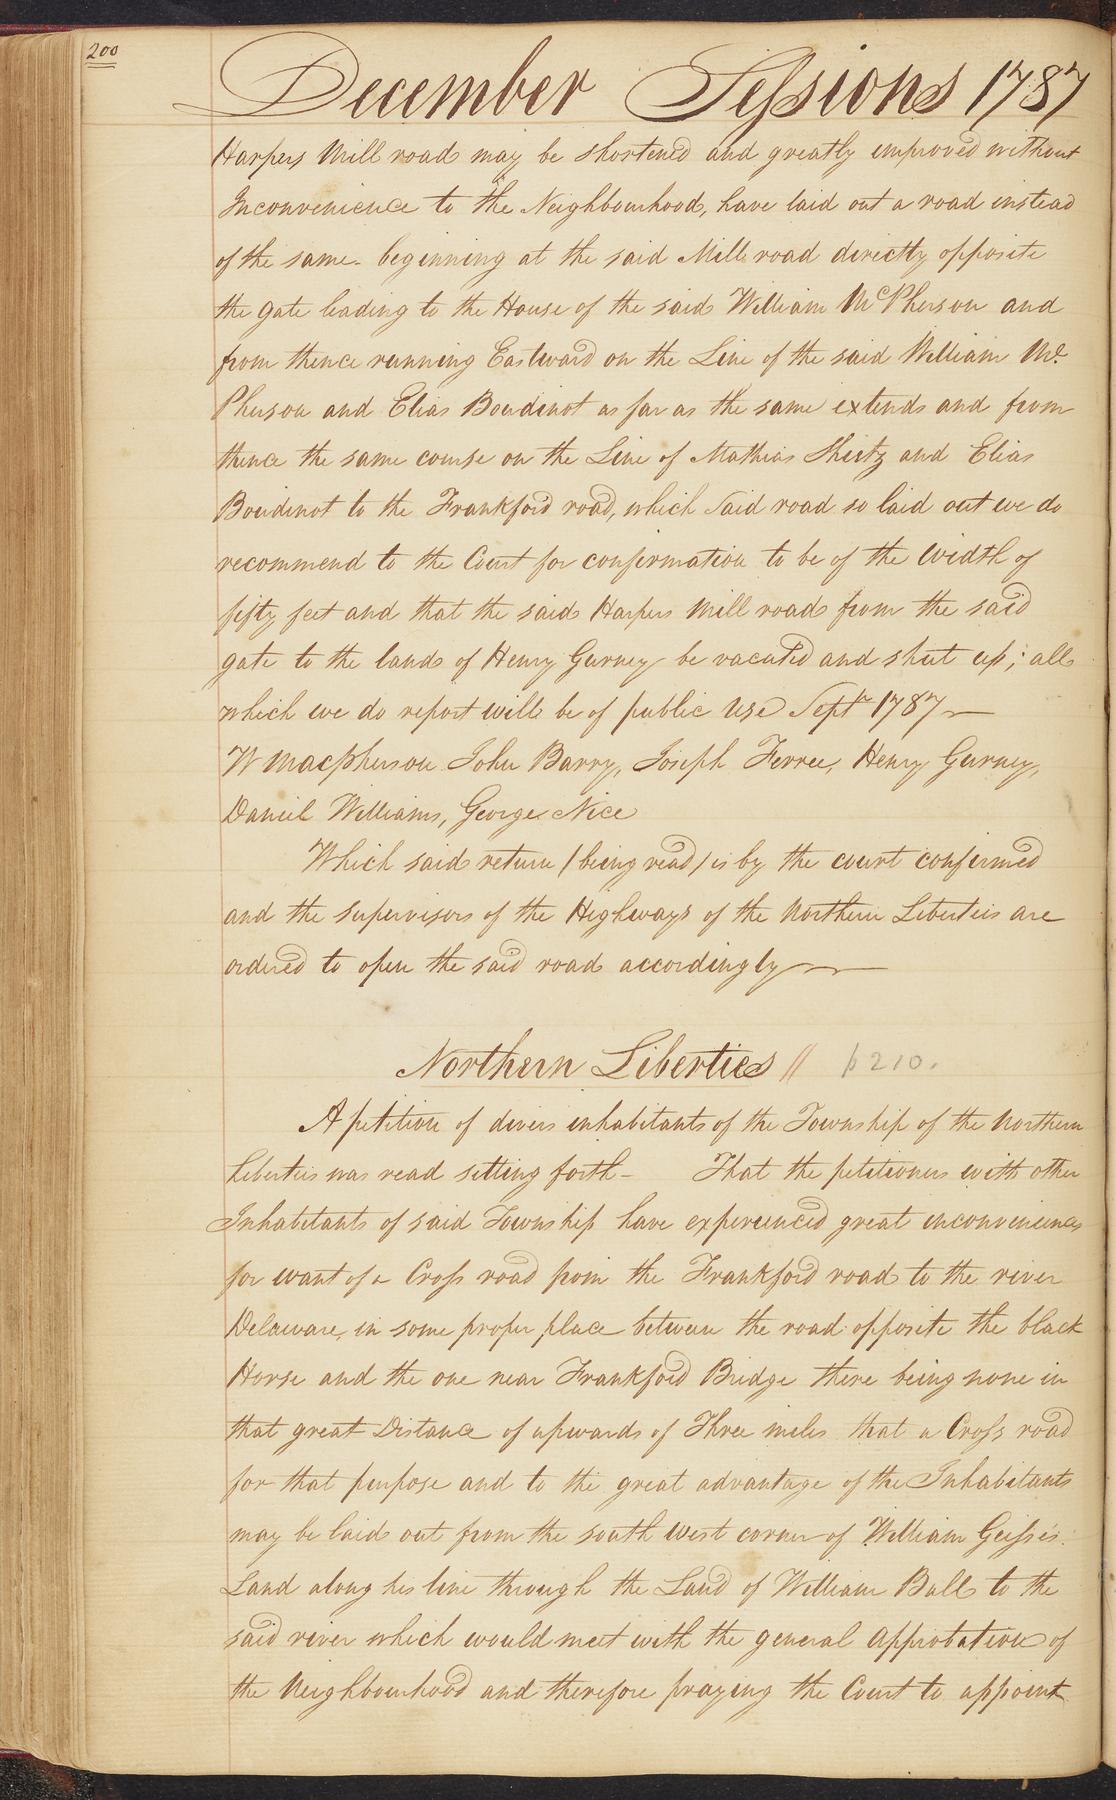 200
December Sessions 1787
Harpers Mill road may be shortened and greatly improved without
Inconvenience to the Neighbourhood, have laid out a road instead
of the same - beginning at the said Mill road directly opposite
the gate leading to the House of the said William McPherson and
from thence running Eastward on the Line of the said William Mc
Pherson and Elias Boudinot as far as the same extends and from
thence the same course on the Line of Mathias Shirtz and Elias
Boudinot to the Frankford road, which said road so laid out we do
recommend to the Court for confirmation to be of the width of
fifty feet and that the said Harpers Mill road from the said
gate to the lands of Henry Gurney be vacated and shut up; all
which we do report will be of public use Septr 1787
W Macpherson John Barry, Joseph Ferree, Henry Gurney,
Daniel Williams, George Nice
Which said return (being read) is by the court confirmed
and the Supervisors of the Highways of the Northern Liberties are
ordered to open the said road accordingly
Northern Liberties // p 210.
A petition of divers inhabitants of the Township of the Northern
Liberties was read setting forth - That the petitioners with other
Inhabitants of said Township have experienced great inconveniences
for want of a Cross road from the Frankford road to the river
Delaware, in some proper place between the road opposite the black
Horse and the one near Frankford Bridge there being none in
that great Distance of upwards of Three miles that a Cross road
for that purpose and to the great advantage of the Inhabitants
may be laid out from the south west corner of William Geisse's
Land along his line through the Land of William Ball to the
said river which would meet with the general Approbation of
the Neighbourhood and therefore praying the Court to appoint